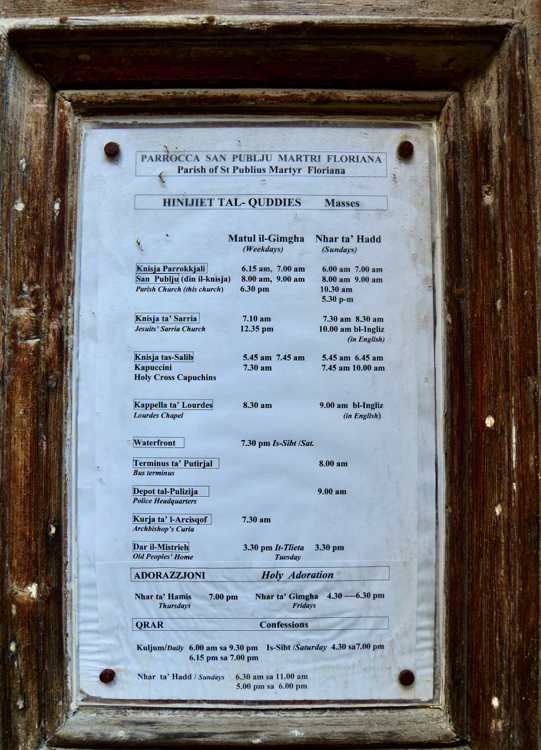 PARROCCA SAN PUBLJU MARTRI FLORIANA
Parish of St Publius Martyr Floriana
HINIJIET TAL- QUDDIES Masses
Matul il-Gimgha Nhar ta' Hadd
(Weekdays) (Sundays)
Knisja Parrokkjali 6.15 am, 7.00 am 6.00 am 7.00 am
San Publju (din il-knisja) 8.00 am, 9.00 am 8.00 am 9.00 am
Parish Church (this church) 6.30 pm 10.30 am
5.30 p-m
Knisja ta' Sarria 7.10 am 7.30 am 8.30 am
Jesuits' Sarria Church 12.35 pm 10.00 am bl-Ingliz
(in English)
Knisja tas-Salib 5.45 am 7.45 am 5.45 am 6.45 am
Kapuccini 7.30 am 7.45 am 10.00 am
Holy Cross Capuchins
Kappella ta' Lourdes 8.30 am 9.00 am bl-Ingliz
Lourdes Chapel (in English)
Waterfront 7.30 pm Is-Sibt /Sat.
Terminus ta' Putirjal 8.00 am
Bus terminus
Depot tal-Pulizija 9.00 am
Police Headquarters
Kurja ta' l-Arcisqof 7.30 am
Archbishop's Curia
Dar il-Mistrieh 3.30 pm It-Tlieta 3.30 pm
Old Peoples' Home Tuesday
ADORAZZJONI Holy Adoration
Nhar ta' Hamis 7.00 pm Nhar ta' Gimgha 4.30 ----6.30 pm
Thursdays Fridays
QRAR Confessions
Kuljum/Daily 6.00 am sa 9.30 pm Is-Sibt /Saturday 4.30 sa7.00 pm
6.15 pm sa 7.00 pm
Nhar ta' Hadd / Sundays 6.30 am sa 11.00 am
5.00 pm sa 6.00 pm